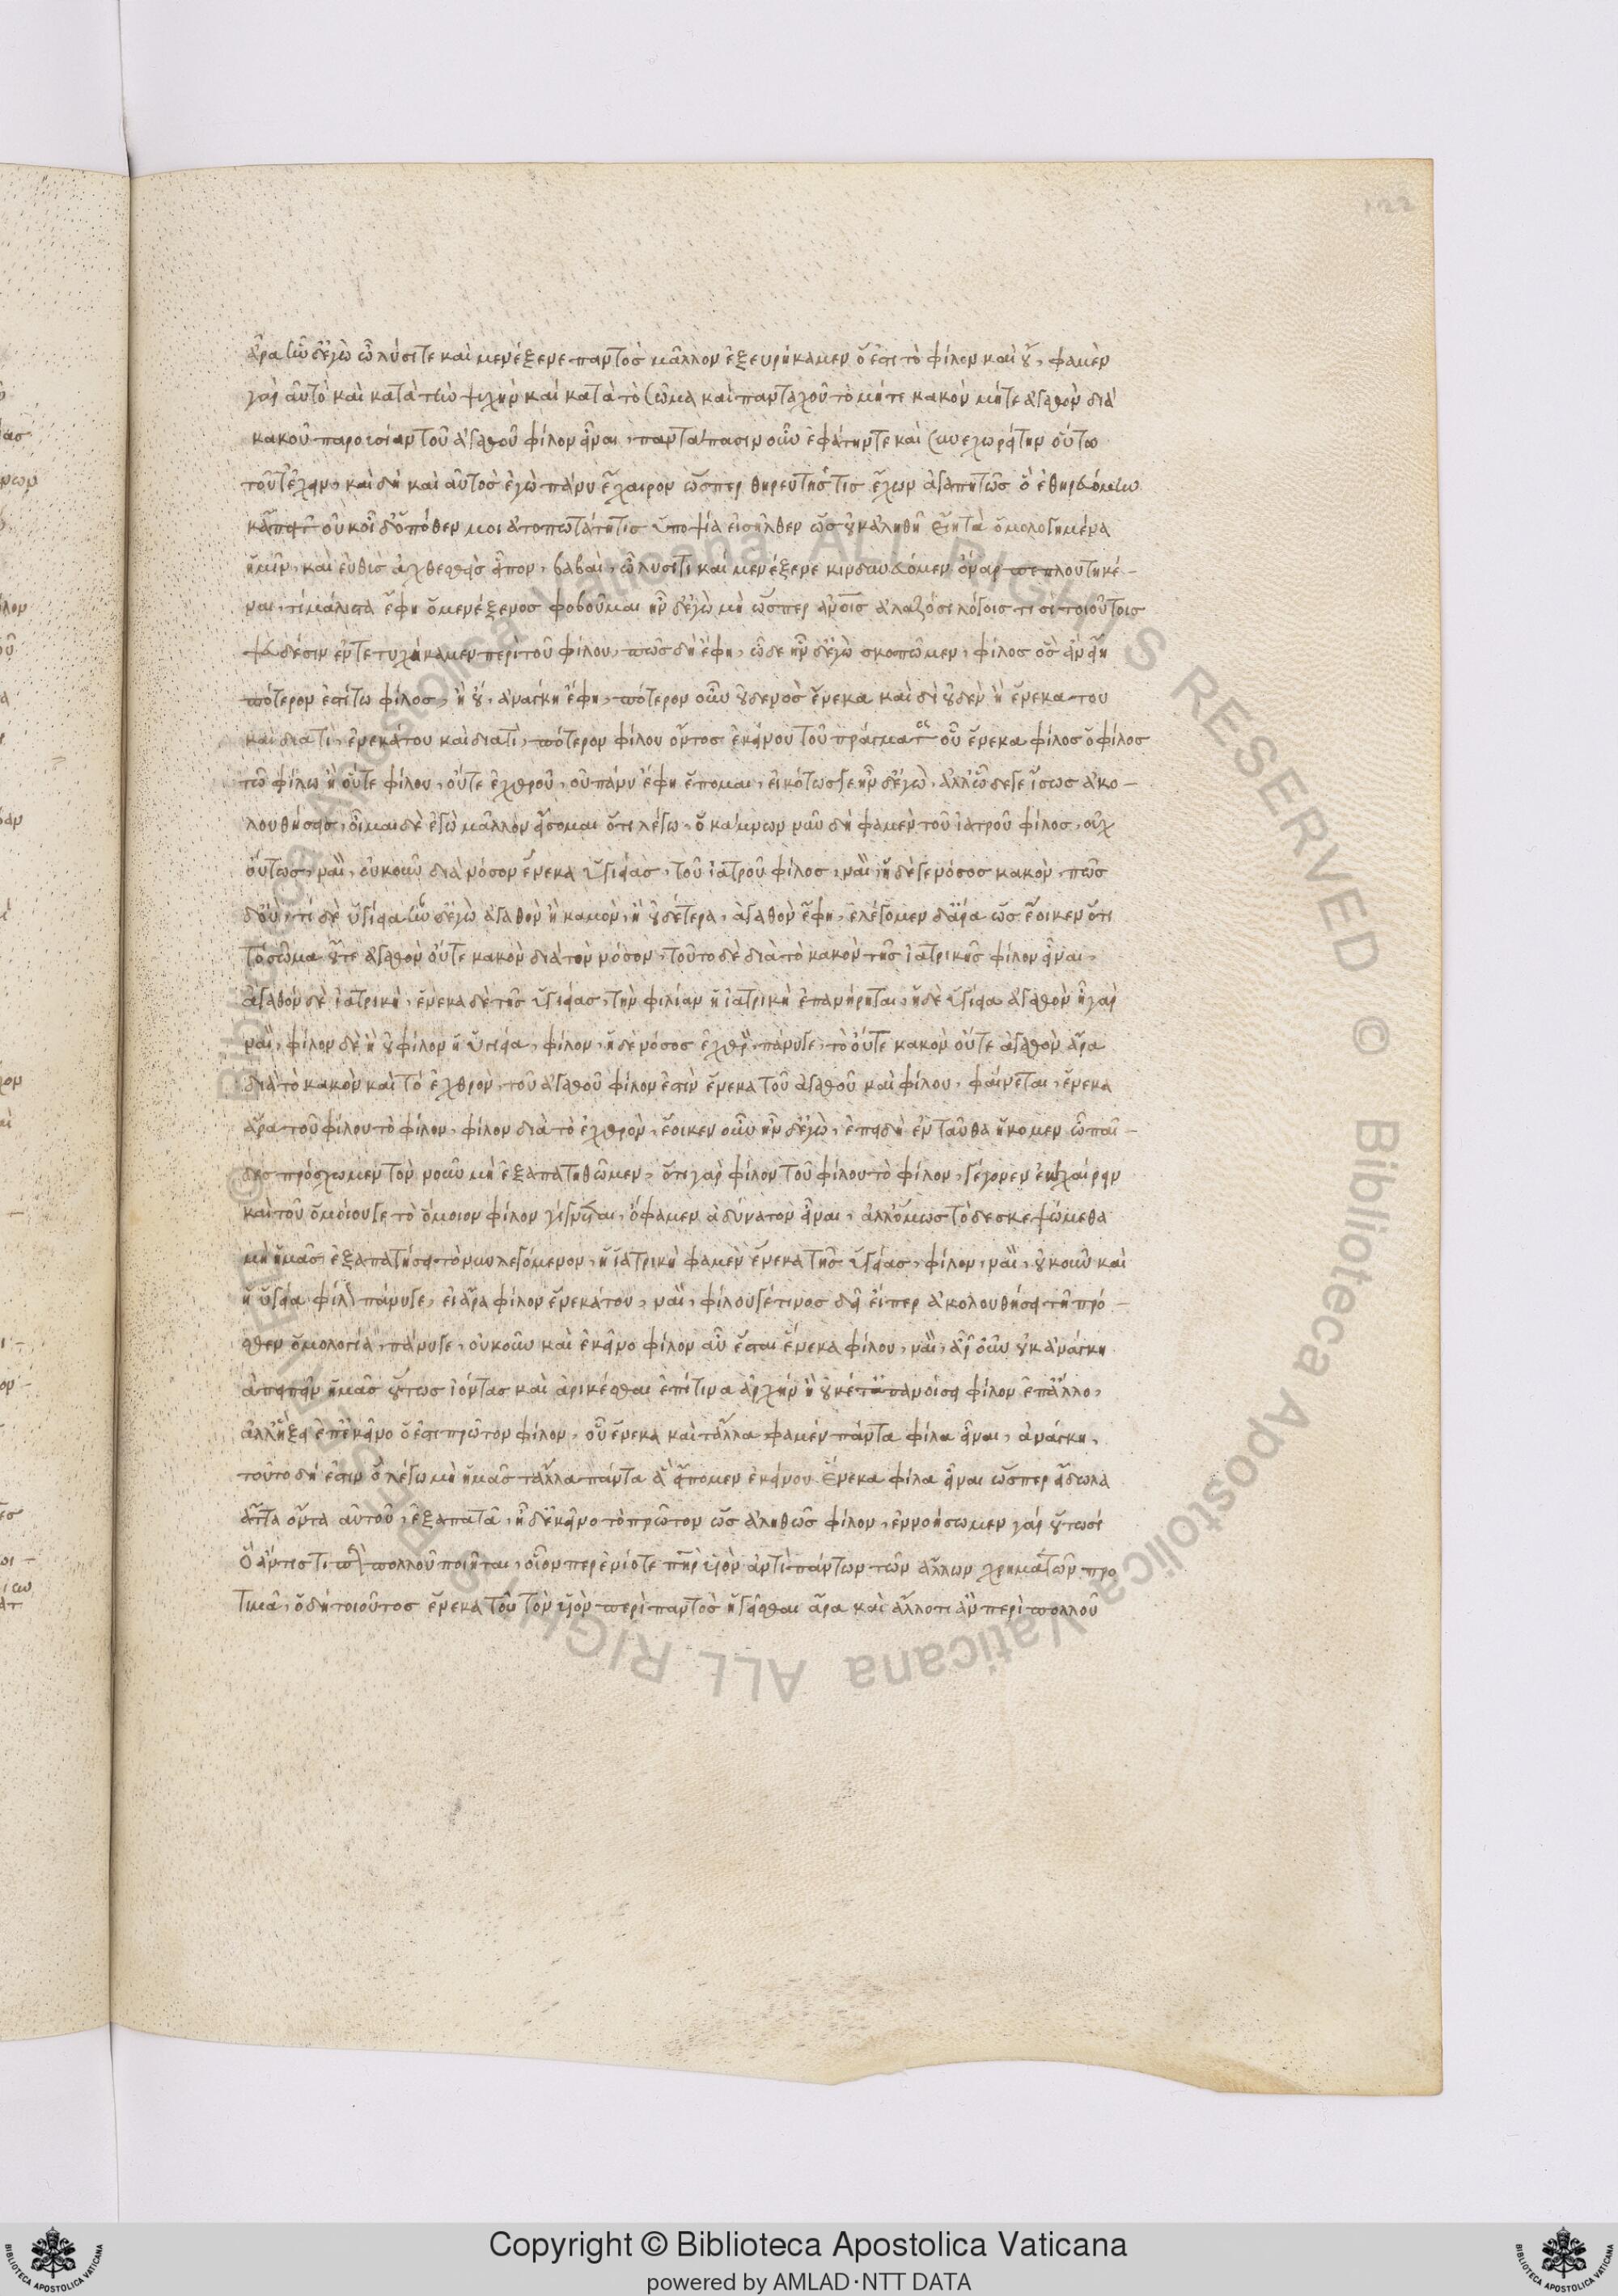 122
ἄρα ἦν δ' ἐγὼ ὦ λύσι τε καὶ μενέξενε παντὸς μᾶλλον ἐξευρήκαμεν ὅ ἐστι τὸ φίλον καὶ οὔ, φαμὲν
γὰρ αὐτὸ καὶ κατὰ τὴν ψυχὴν καὶ κατὰ τὸ σῶμα καὶ πανταχοῦ τὸ μήτε κακὸν μήτε ἀγαθὸν διὰ
κακοῦ παρουσίαν τοῦ ἀγαθοῦ φίλον εἶναι, παντάπασιν οὖν ἐφάτην τε καὶ συνεχωρείτην οὕτω
τοῦτ' ἔχειν, καὶ δὴ καὶ αὐτὸς ἐγὼ πάνυ ἔχαιρον ὥσπερ θηρευτής τις ἔχων ἀγαπητῶς ὃ ἐθηρευόμην
κἄπειτ' οὐκ οἶδ' ὁπόθεν μοι ἀτοπωτάτη τις ὑποψία εἰσῆλθεν ὡς οὐκ ἀληθῆ εἴη τὰ ὁμολογημένα
ἡμῖν, καὶ εὐθὺς ἀχθεσθεὶς εἶπον, βαβαὶ, ὦ λύσι τε καὶ μενέξενε κινδυνεύομεν ὄναρ πεπλουτηκέ-
ναι, τί μάλιστα ἔφη ὁ μενέξενος φοβοῦμαι ἦν δ' ἐγὼ μὴ ὥσπερ ἀνοις ἀλαζόσι λόγοις τισὶ τοιούτοις
ψευδέσιν ἐντετυχήκαμεν περὶ τοῦ φίλου, πῶς δὴ ἔφη, ὧδε ἦν δ' ἐγὼ σκοπῶμεν, φίλος ὃς ἂν εἴη
πότερον ἐστί τω φίλος, ἢ οὔ, ἀνάγκη ἔφη, πότερον οὖν οὐδενὸς ἕνεκα καὶ δι' οὐδὲν ἢ ἕνεκα του
καὶ διά τι, ἕνεκά του καὶ διά τι, πότερον φίλου ὄντος ἐκείνου τοῦ πράγματος οὗ ἕνεκα φίλος ὁ φίλος
τῷ φίλῳ ἢ οὔτε φίλου, οὔτε ἐχθροῦ, οὐ πάνυ ἔφη ἕπομαι, εἰκότως γε ἦν δ' ἐγὼ, ἀλλ' ὧδέ γε ἴσως ἀκο-
λουθήσεις, οἶμαι δὲ ἐγὼ μᾶλλον εἴσομαι ὅτι λέγω, ὁ κάμνων νῦν δὴ φαμὲν τοῦ ἰατροῦ φίλος, οὐχ
οὕτως, ναὶ, οὐκοῦν διὰ νόσον ἕνεκα ὑγιείας, τοῦ ἰατροῦ φίλος, ναὶ, ἡ δέ γε νόσος κακὸν, πῶς
δ' οὔ, τί δὲ ὑγίεια ἦν δ' ἐγὼ ἀγαθὸν ἢ κακὸν, ἢ οὐδέτερα, ἀγαθὸν ἔφη, ἐλέγομεν δ' ἄρα ὡς ἔοικεν ὅτι
τὸ σῶμα οὔτε ἀγαθὸν οὔτε κακὸν διὰ τὴν νόσον, τοῦτο δὲ διὰ τὸ κακὸν τῆς ἰατρικῆς φίλον εἶναι,
ἀγαθὸν δὲ ἰατρικὴ, ἕνεκα δὲ τῆς ὑγιείας, τὴν φιλίαν ἡ ἰατρικὴ ἐπανήρηται, ἡ δὲ ὑγίεια ἀγαθὸν ἦ γὰρ
ναὶ, φίλον δὲ ἢ οὐ φίλον ἡ ὑγίεια, φίλον, ἡ δὲ νόσος ἐχθρ, πάνυ γε, τὸ οὔτε κακὸν οὔτε ἀγαθὸν ἄρα
διὰ τὸ κακὸν καὶ τὸ ἐχθρὸν, τοῦ ἀγαθοῦ φίλον ἐστὶν ἕνεκα τοῦ ἀγαθοῦ καὶ φίλου, φαίνεται, ἕνεκα
ἄρα τοῦ φίλου τὸ φίλον, φίλον διὰ τὸ ἐχθρὸν, ἔοικεν οὖν ἦν δ' ἐγὼ, ἐπειδὴ ἐνταῦθα ἥκομεν ὦ παῖ-
δες πρόσχωμεν τὸν νοῦν μὴ ἐξαπατηθῶμεν, ὅτι γὰρ φίλον τοῦ φίλου τὸ φίλον, γέγονεν ἐῶ χαίρειν
καὶ τοῦ ὁμοίου γε τὸ ὅμοιον φίλον γίγνεσθαι, ὅ φαμεν ἀδύνατον εἶναι, ἀλλ' ὅμως τόδε σκεψώμεθα
μὴ ἡμᾶς ἐξαπατήσει τὸ νῦν λεγόμενον, ἡ ἰατρικὴ φαμὲν ἕνεκα τῆς ὑγιείας, φίλον, ναὶ, οὐκοῦν καὶ
ἡ ὑγίεια φίλον πάνυ γε, εἰ ἄρα φίλον ἕνεκά του, ναὶ, φίλου γέ τινος δεῖ εἴπερ ἀκολουθήσει τῇ πρό-
σθεν ὁμολογία, πάνυ γε, οὐκοῦν καὶ ἐκεῖνο φίλον αὖ ἔσται ἕνεκα φίλου, ναὶ, ἆρ' οὖν οὐκ ἀνάγκη
ἀπειπεῖν ἡμᾶς οὕτως ἰόντας καὶ ἀφικέσθαι ἐπί τινα ἀρχὴν ἢ οὐκέτ' ἐπανοίσει φίλον ἐπ' ἄλλο,
ἀλλ' ἥξει ἐπ' ἐκεῖνο ὅ ἐστι πρῶτον φίλον, οὗ ἕνεκα καὶ τἄλλα φαμὲν πάντα φίλα εἶναι, ἀνάγκη,
τοῦτο δή ἐστιν ὃ λέγω μὴ ἡμᾶς τἄλλα πάντα ἃ εἴπομεν ἐκείνου ἕνεκα φίλα εἶναι ὥσπερ εἴδωλα
ἄττα ὄντα αὐτοῦ, ἐξαπατᾷ, ᾖ δ' ἐκεῖνο τὸ πρῶτον ὡς ἀληθῶς φίλον, ἐννοήσωμεν γὰρ οὑτωσί
ὃ ἄν τίς τι πολλοῦ ποιῆται, οἷόν περ ἐνίοτε πηρ υἱὸν ἀντὶ πάντων τῶν ἄλλων χρημάτων προ
τιμᾷ, ὁ δὴ τοιοῦτος ἕνεκα τοῦ τὸν υἱὸν περὶ παντὸς ἡγεῖσθαι ἄρα καὶ ἄλλο τι ἂν περὶ πολλοῦ
© Biblioteca Apostolica Vaticana ALL RIGHTS RESERVED © Biblioteca Apostolica Vaticana ALL RIGHTS RESERVED
Copyright © Biblioteca Apostolica Vaticana
powered by AMLAD·NTT DATA
BIBLIOTECA APOSTOLICA VATICANA
BIBLIOTECA APOSTOLICA VATICANA